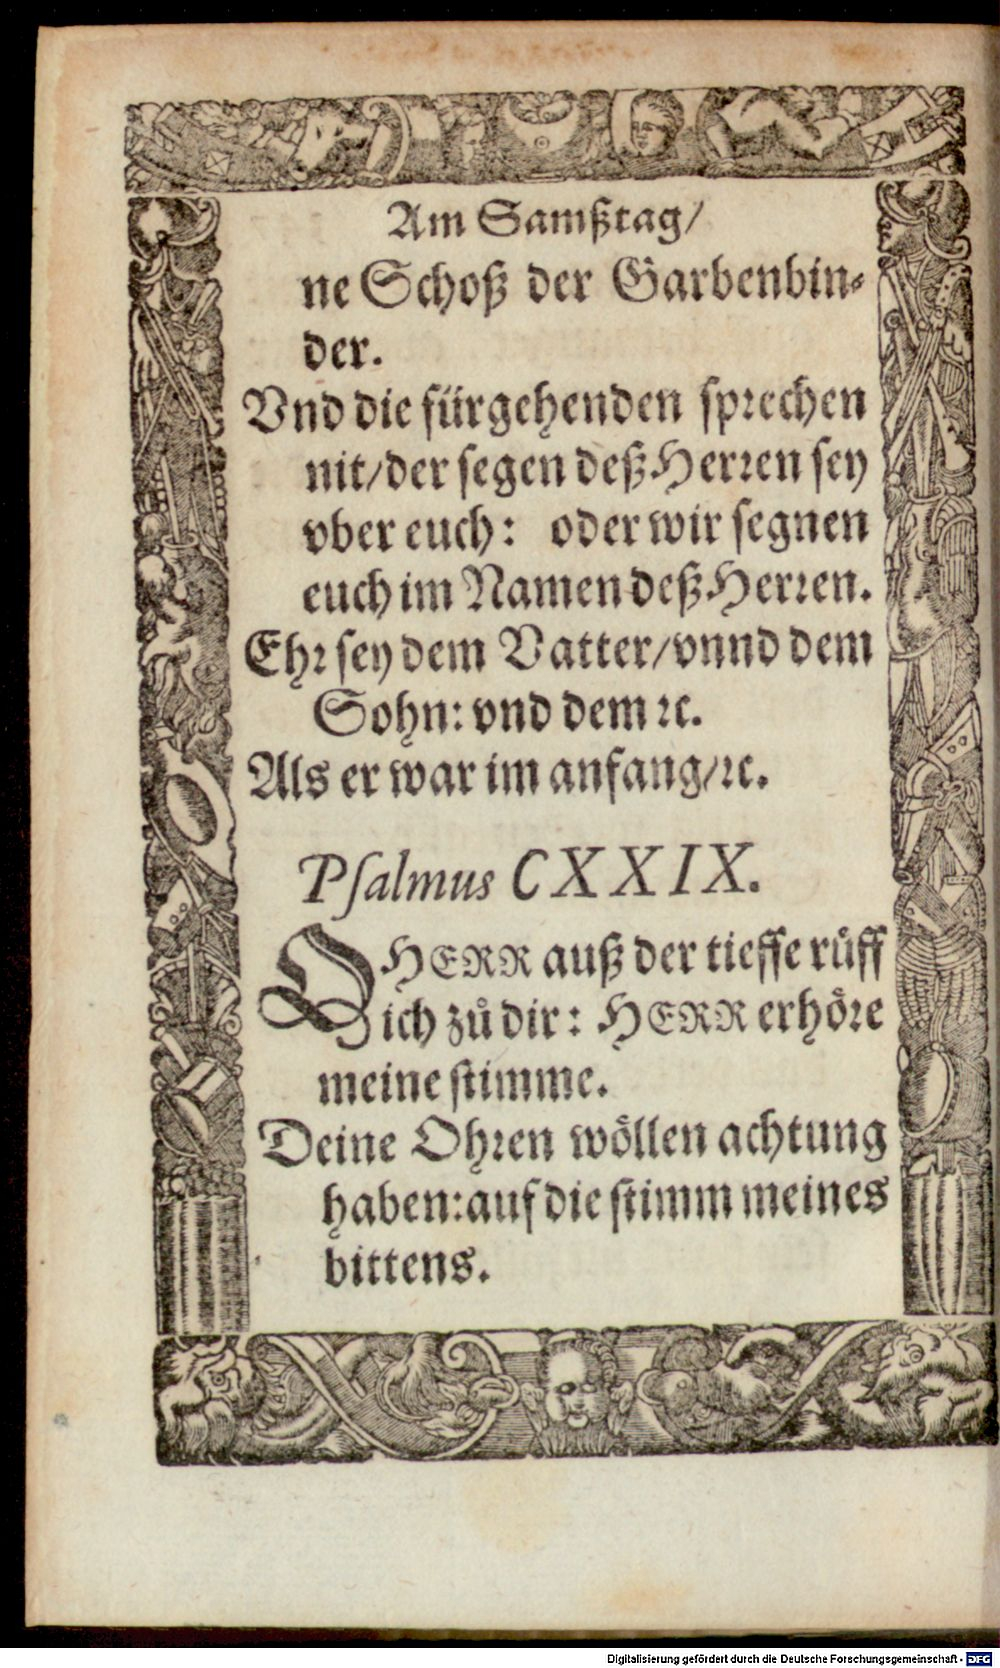 Am Samßtag/
ne Schoß der Garbenbin⸗
der.
Vnd die fürgehenden sprechen
nit/der segen deß Herren sey
vber euch: oder wir segnen
euch im Namen deß Herren.
Ehr sey dem Vatter/vnnd dem
Sohn: vnd dem ꝛc.
Als er war im anfang/ꝛc.
Psalmus CXXIX.
O HERR auß der tieffe rüff
ich zů dir: HERR erhöre
meine stimme.
Deine Ohren wöllen achtung
haben: auf die stimm meines
bittens.
Digitalisierung gefördert durch die Deutsche Forschungsgemeinschaft - DFG